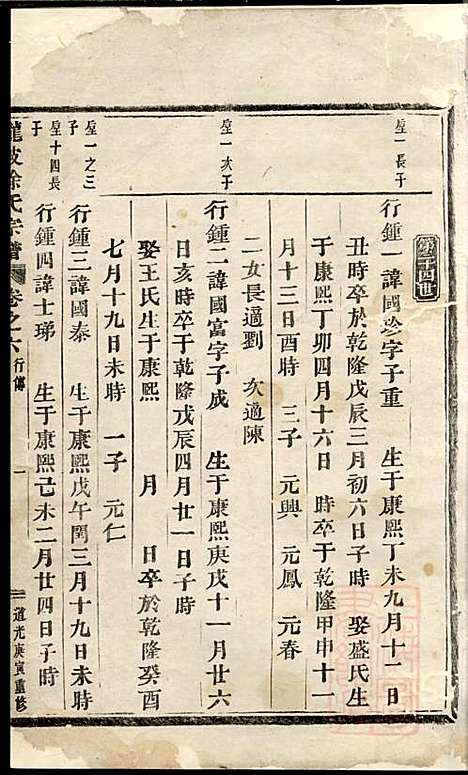 第十四世
星一長子
行鍾一諱國珍字子重 生于康熙丁未九月十一日
丑時卒於乾隆戊辰三月初六日子時 娶盛氏生
于康熙丁卯四月十六日 時卒于乾隆甲申十一
月十三日酉時 三子 元興 元鳳 元春
二女長適劉 次適陳
星一次子
行鍾二諱國富字子成 生于康熙庚戌十一月廿六
日亥時卒于乾隆戊辰四月廿一日子時
娶王氏生于康熙 月 日卒於乾隆癸酉
七月十九日未時 一子 元仁
星一之三子
行鍾三諱國泰 生于康熙戊午閏三月十九日未時
星十四長子
行鍾四諱士瑅 生于康熙己未二月廿四日子時
龍陂徐氏宗譜 卷之六 行傳 一 道光庚寅重修